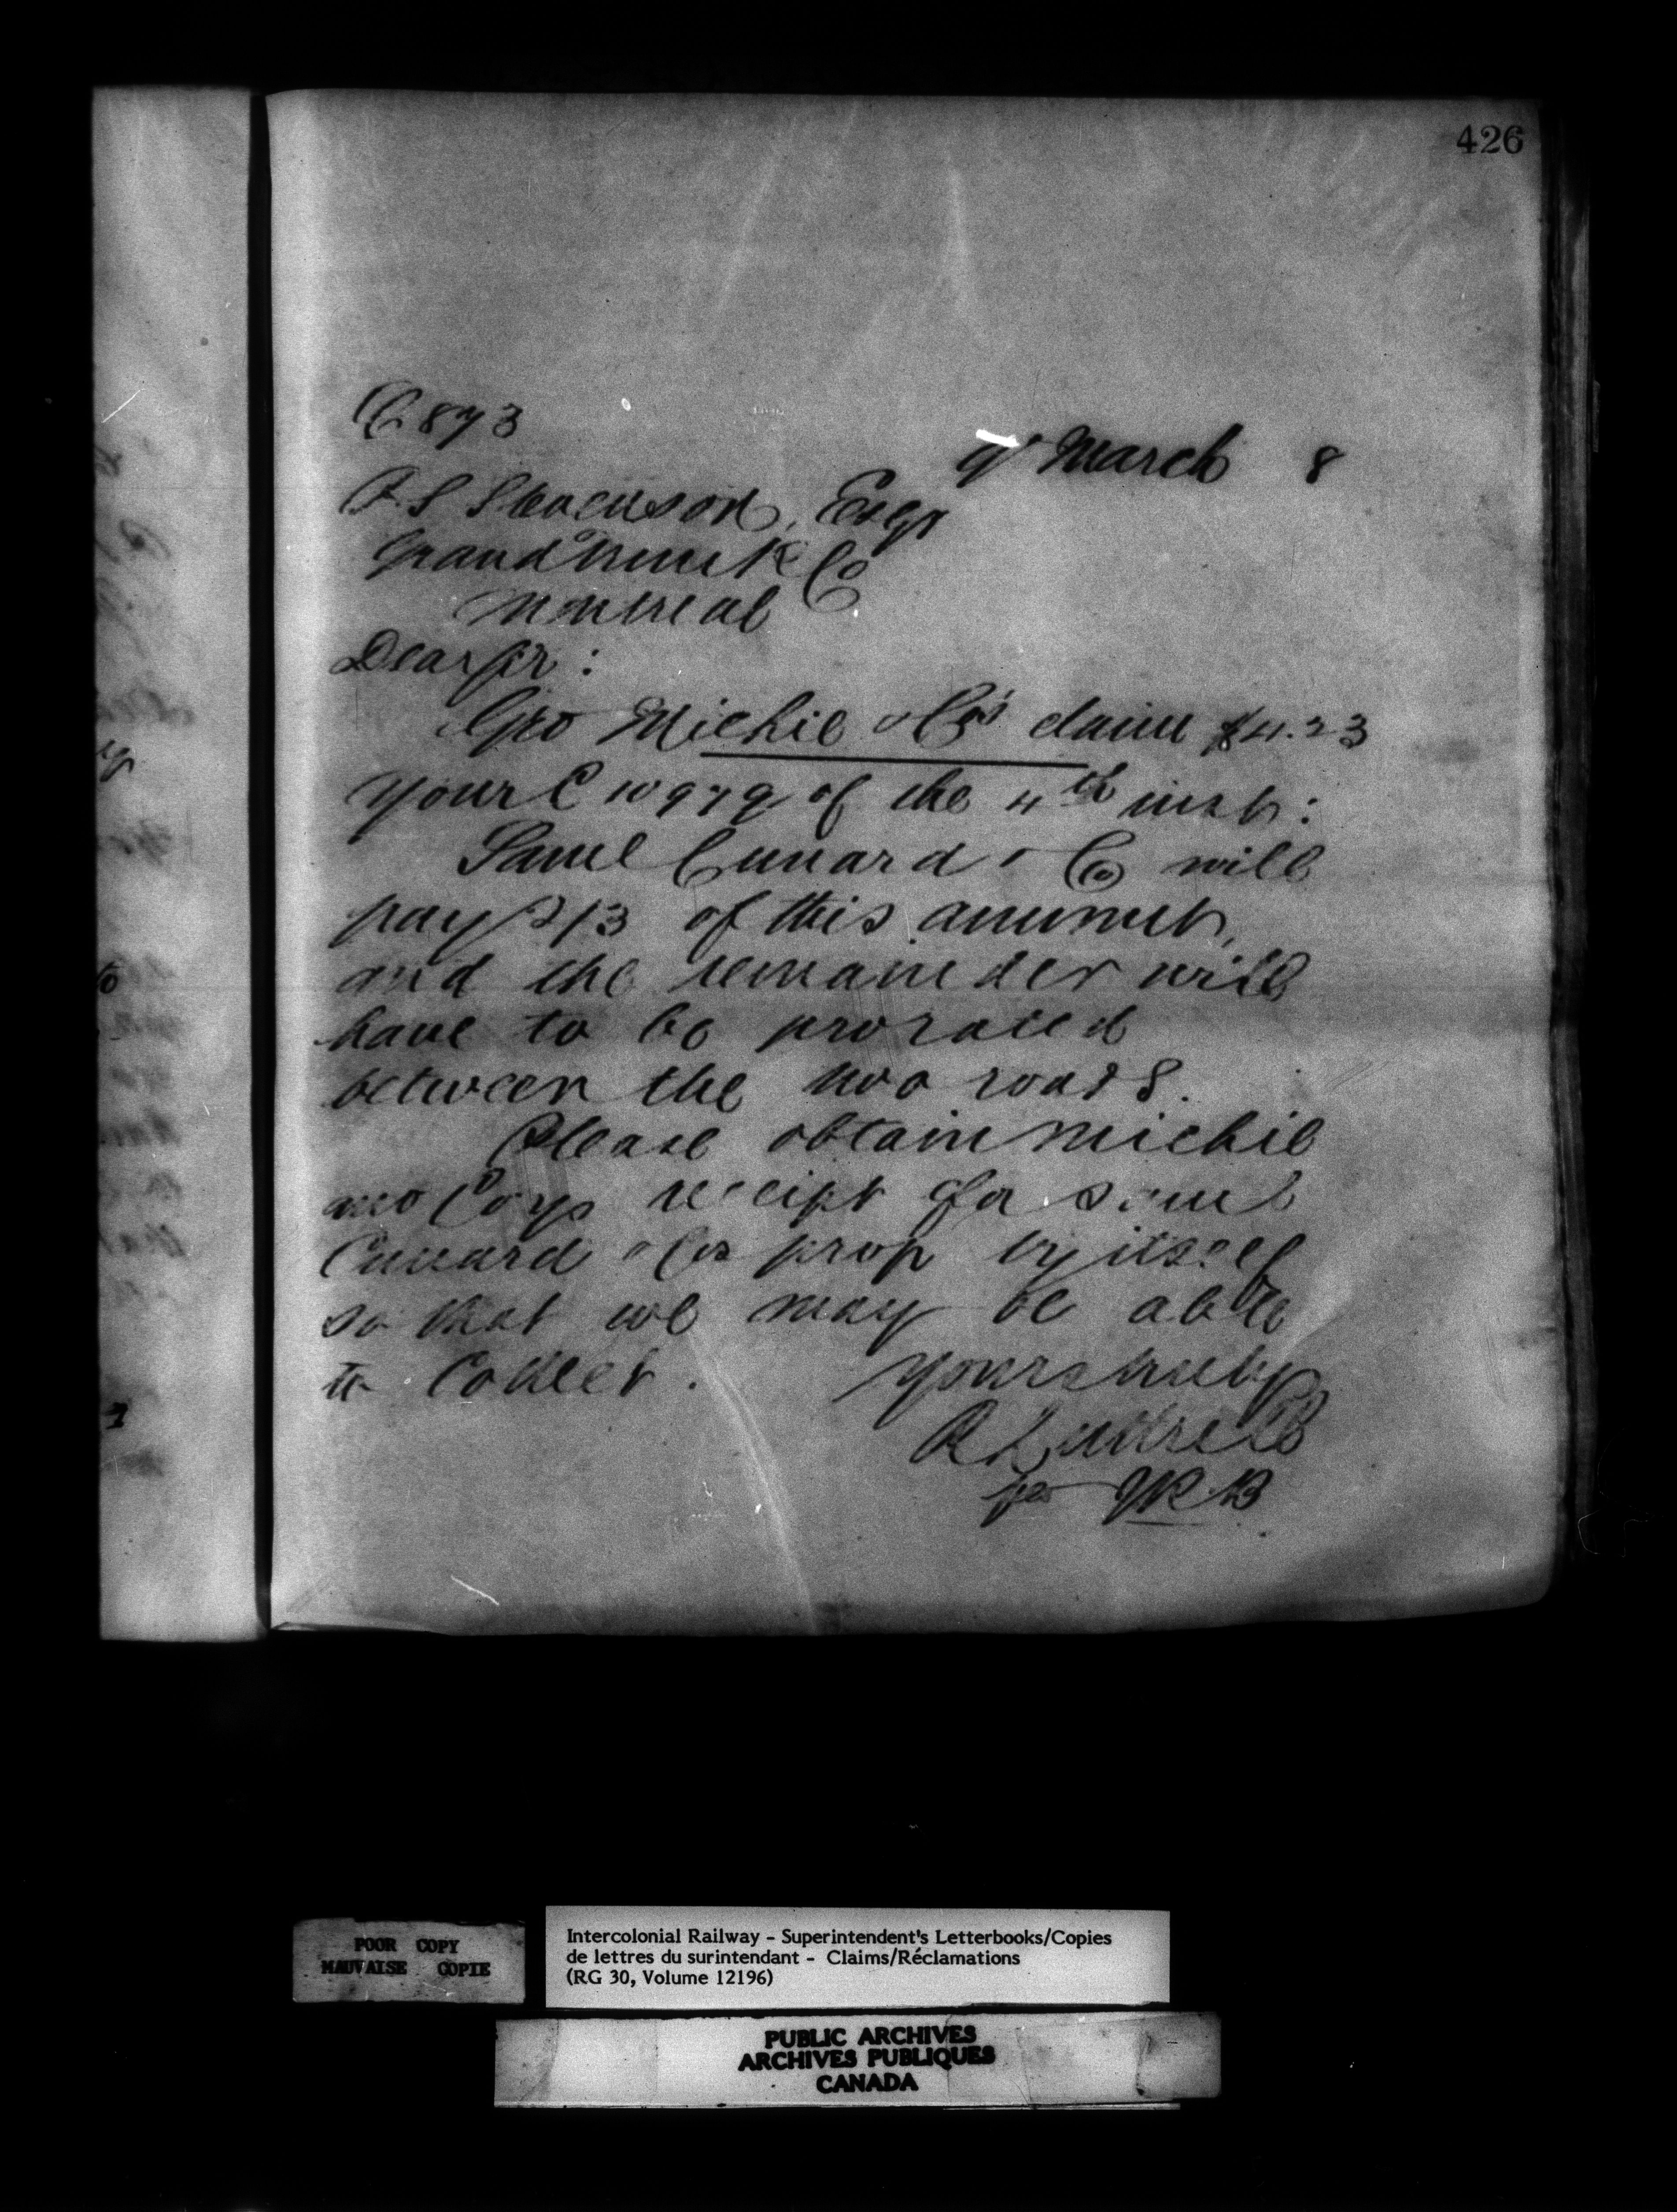 426
C 873
9 March 8
P. S Stevenson, Esqr
Grand Trunk Co
Montreal
Dear Sir :
Geo Michie & Co's claim $4.23
your C 10979 of the 4th inst :
Saml Cunard & Co will
pay 2/3 of this amount,
and the remainder will
have to be prorated
between the two roads.
Please obtain Michie
and Coys receipt for Saml
Cunard & Cos prop by itself
so that we may be able
to Collect.
Yours truly
R Luttrell
per JRB
POOR COPY
MAUVAISE COPIE
Intercolonial Railway - Superintendent's Letterbooks/Copies
de lettres du surintendant - Claims/Réclamations
(RG 30, Volume 12196)
PUBLIC ARCHIVES
ARCHIVES PUBLIQUES
CANADA